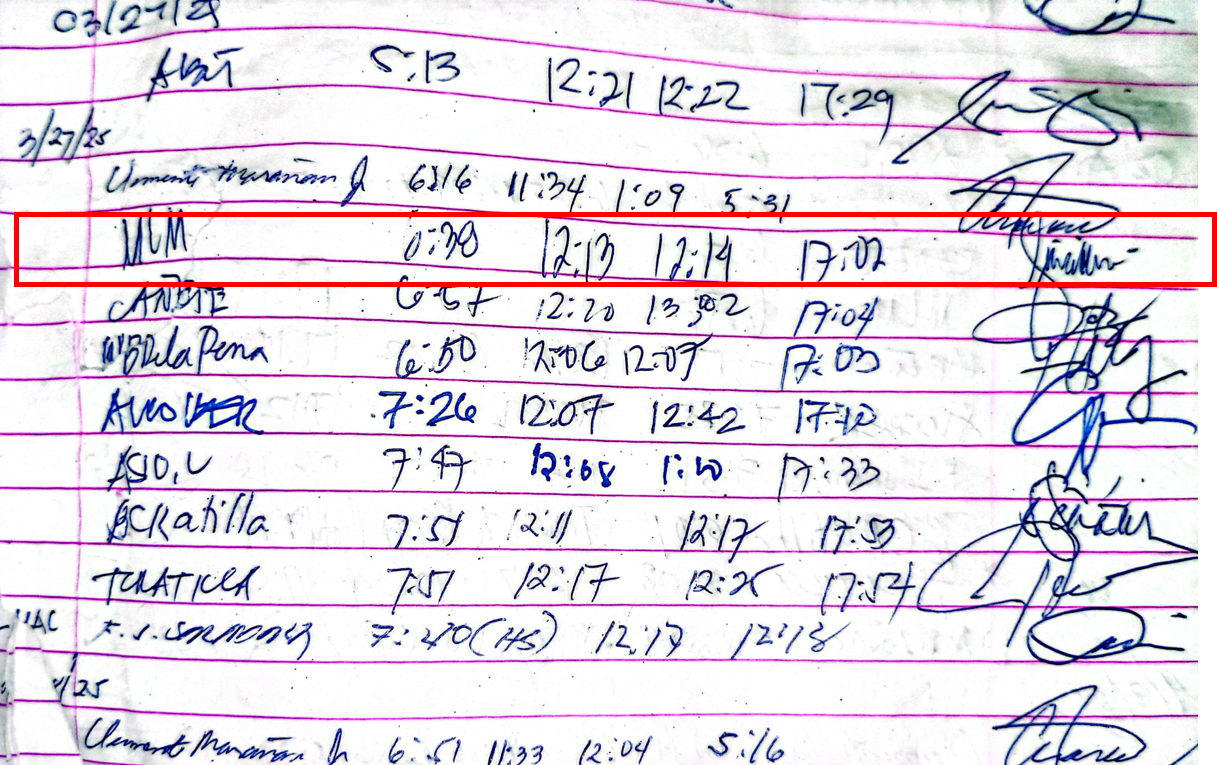 03/27/25
ABAT 5:13 12:21 12:22 17:29
3/27/25
Clemente Marañan Jr 6:16 11:34 1:09 5:31
MLM 6:38 12:13 12:14 17:02
CAÑETE 6:57 12:20 13:02 17:04
Dela Pena 6:50 12:06 12:07 17:03
7:26 12:07 12:42 17:10
ASIO, L 7:47 12:08 1:10 17:33
BCRatilla 7:51 12:11 12:17 17:53
TCRATILLA 7:51 12:17 12:25 17:54
7:40 (HS) 12:17 12:18
/25
Clemente Marañan Jr 6:51 11:33 12:04 5:16